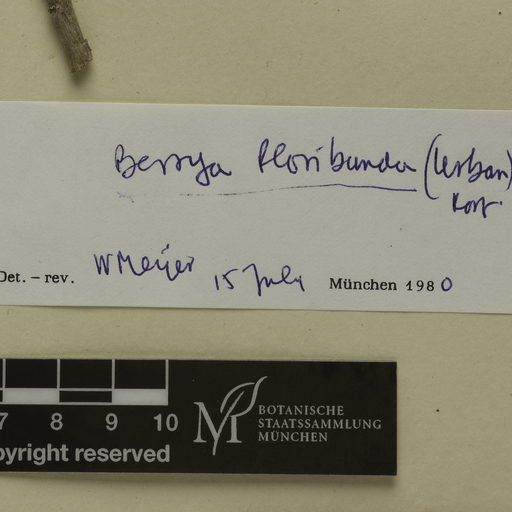 Berrya floribunda (Urban)
Kost.
Det. – rev. W Meijer 15 July München 1980
7 8 9 10
BOTANISCHE
STAATSSAMMLUNG
MÜNCHEN
pyright reserved